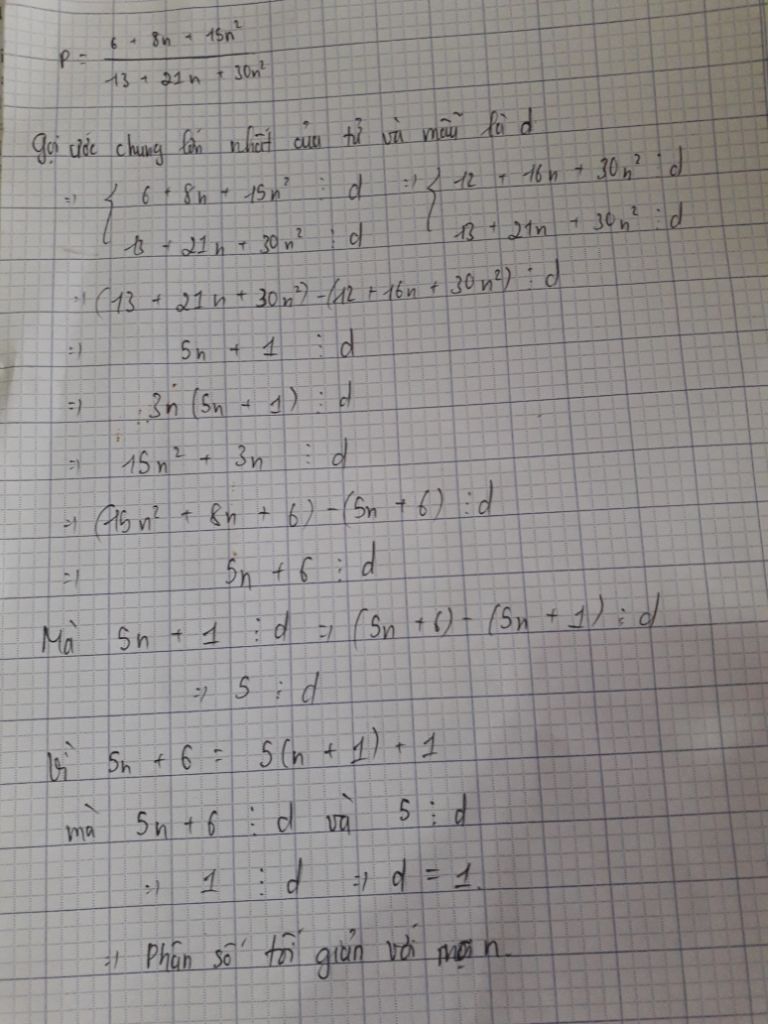 P = (6 + 8n + 15n²) / (13 + 21n + 30n²)
Gọi ước chung lớn nhất của tử và mẫu là d
=> { 6 + 8n + 15n² ⋮ d => { 12 + 16n + 30n² ⋮ d
13 + 21n + 30n² ⋮ d 13 + 21n + 30n² ⋮ d
=> (13 + 21n + 30n²) - (12 + 16n + 30n²) ⋮ d
=> 5n + 1 ⋮ d
=> 3n (5n + 1) ⋮ d
=> 15n² + 3n ⋮ d
=> (15n² + 8n + 6) - (5n + 6) ⋮ d
=> 5n + 6 ⋮ d
Mà 5n + 1 ⋮ d => (5n + 6) - (5n + 1) ⋮ d
=> 5 ⋮ d
Vì 5n + 6 = 5(n + 1) + 1
mà 5n + 6 ⋮ d và 5 ⋮ d
=> 1 ⋮ d => d = 1.
=> Phân số tối giản với mọi n.